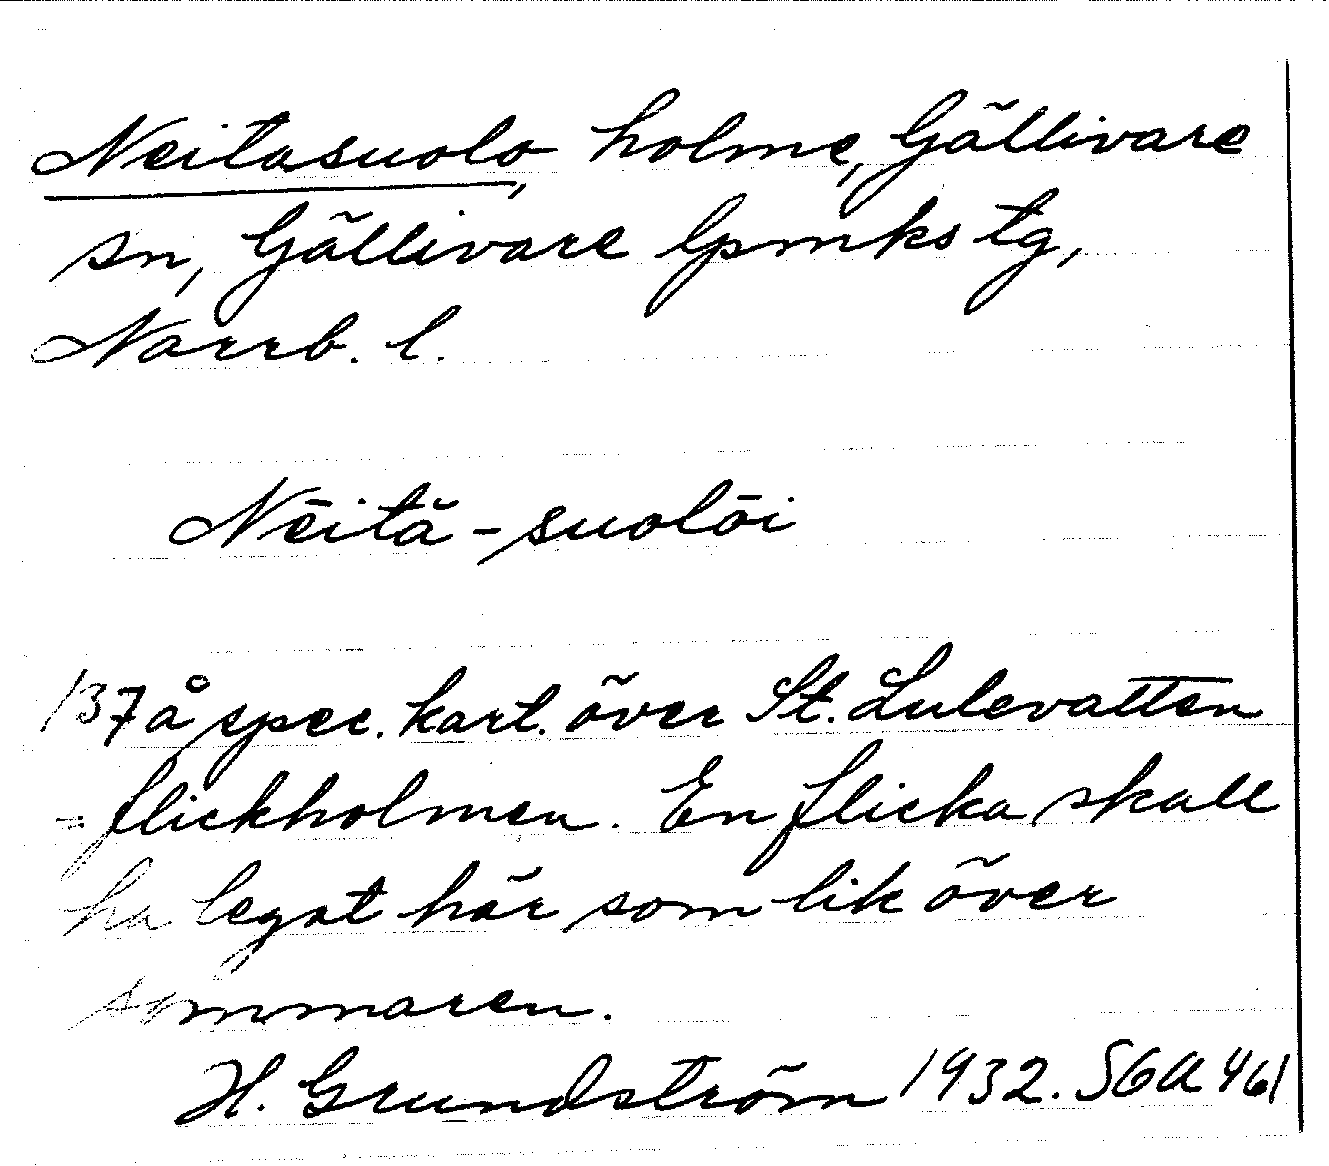 Neitasuolo, holme, Gällivare
sn, Gällivare lpmks tg,
Norrb. l.
Nēită-suolōi
137 å spec. kart. över St. Lulevatten
= flickholmen. En flicka skall
ha legat här som lik över
sommaren.
H. Grundström 1932. SGA 461